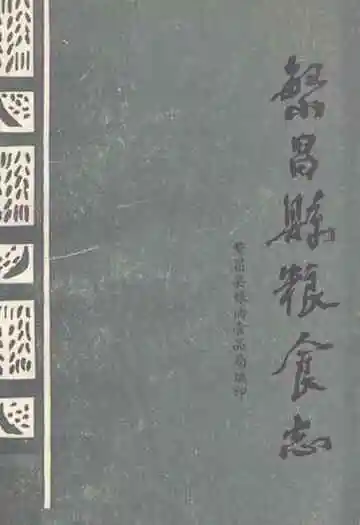 繁昌縣粮食志
繁昌县粮油食品局编印